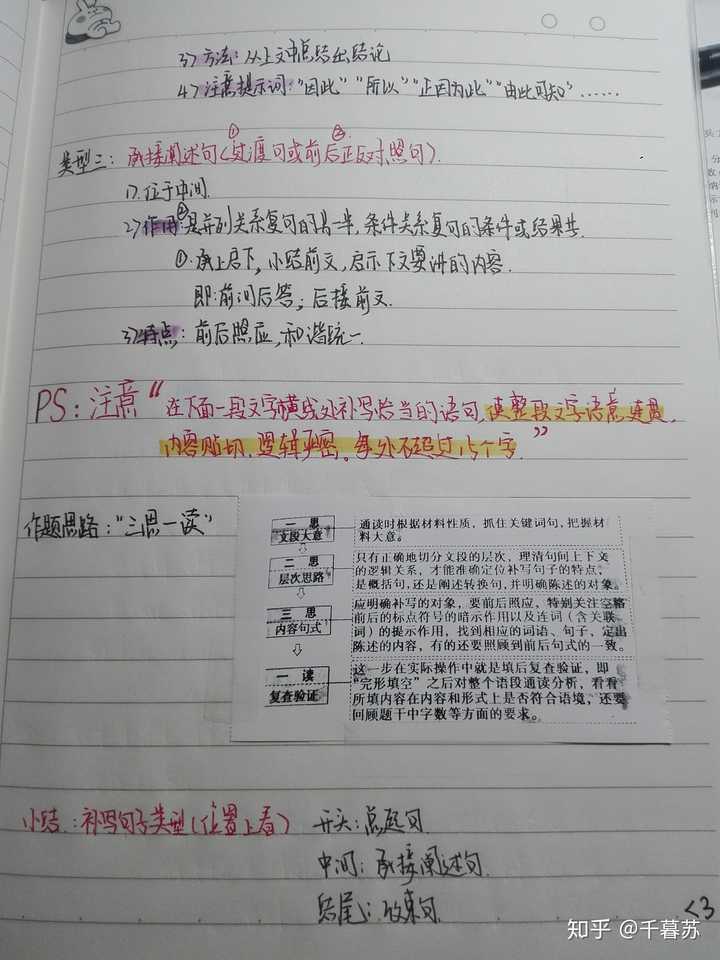 3>方法:从上文中总结出结论
4>注意提示词:"因此" "所以" "正因为此" "由此可知"……
类型三:承接阐述句(①过渡句或②前后正反对照句).
1>位于中间.
2>作用:②是并列关系复句的另一半,条件关系复句的条件或结果等.
①.承上启下,小结前文,启示下文要讲的内容.
即:前问后答;后接前文.
3>特点:前后照应,和谐统一.
PS:注意"在下面一段文字横线处补写恰当的语句,使整段文字语意连贯,
内容贴切,逻辑严密。每处不超过15个字."
作题思路:"三思一读"
一 思
文段大意
通读时根据材料性质,抓住关键词句,把握材
料大意。
二 思
层次思路
只有正确地切分文段的层次,理清句间上下文
的逻辑关系,才能准确定位补写句子的特点,
是概括句,还是阐述转换句,并明确陈述的对象。
三 思
内容句式
应明确补写的对象,要前后照应,特别关注空格
前后的标点符号的暗示作用以及连词(含关联
词)的提示作用,找到相应的词语、句子,定出
陈述的内容,有的还要照顾到前后句式的一致。
一 读
复查验证
这一步在实际操作中就是填后复查验证,即
"完形填空"之后对整个语段通读分析,看看
所填内容在内容和形式上是否符合语境,还要
回顾题干中字数等方面的要求。
小结:补写句子类型(位置上看) 开头:点题句.
中间:承接阐述句.
结尾:收束句.
<3
知乎 @千暮苏